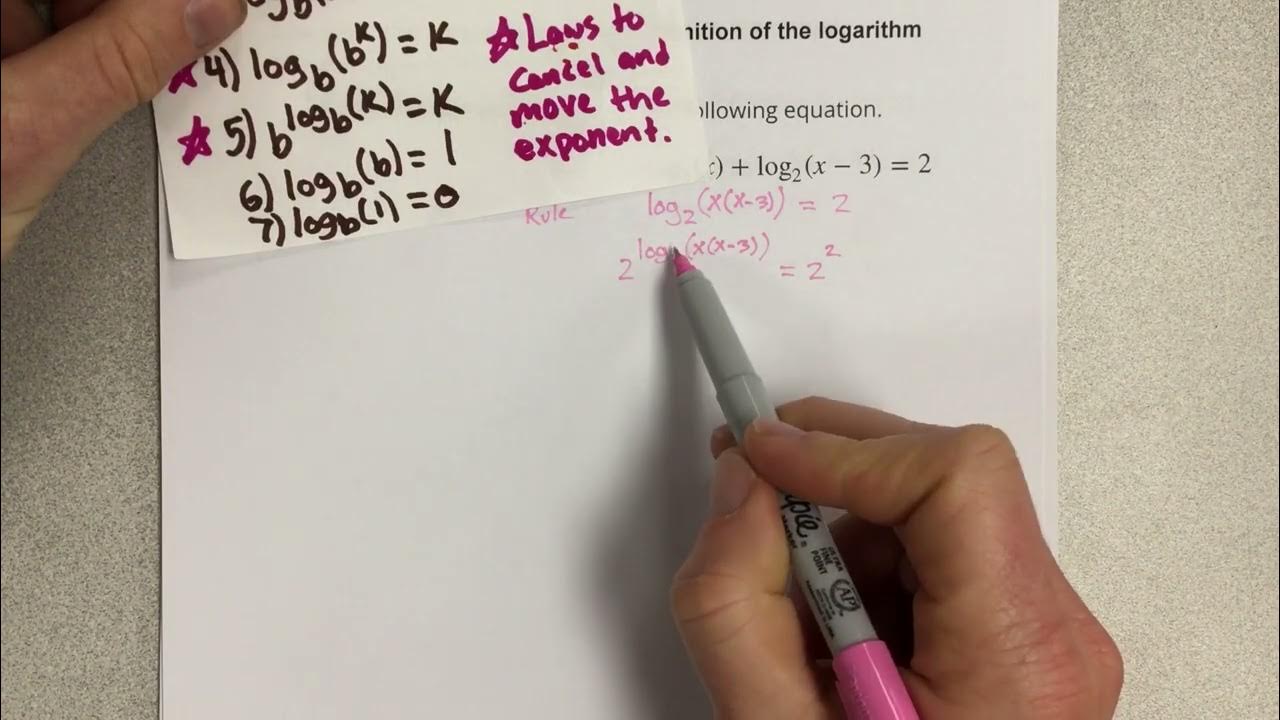 4) log_b(b^k) = K
5) b^log_b(K) = K
6) log_b(b) = 1
7) log_b(1) = 0
☆ Laws to
cancel and
move the
exponent.
nition of the logarithm
ollowing equation.
) + log₂(x − 3) = 2
Rule
log₂(x(x-3)) = 2
2^log(x(x-3)) = 2²
ULTRA
FINE
POINT
AP